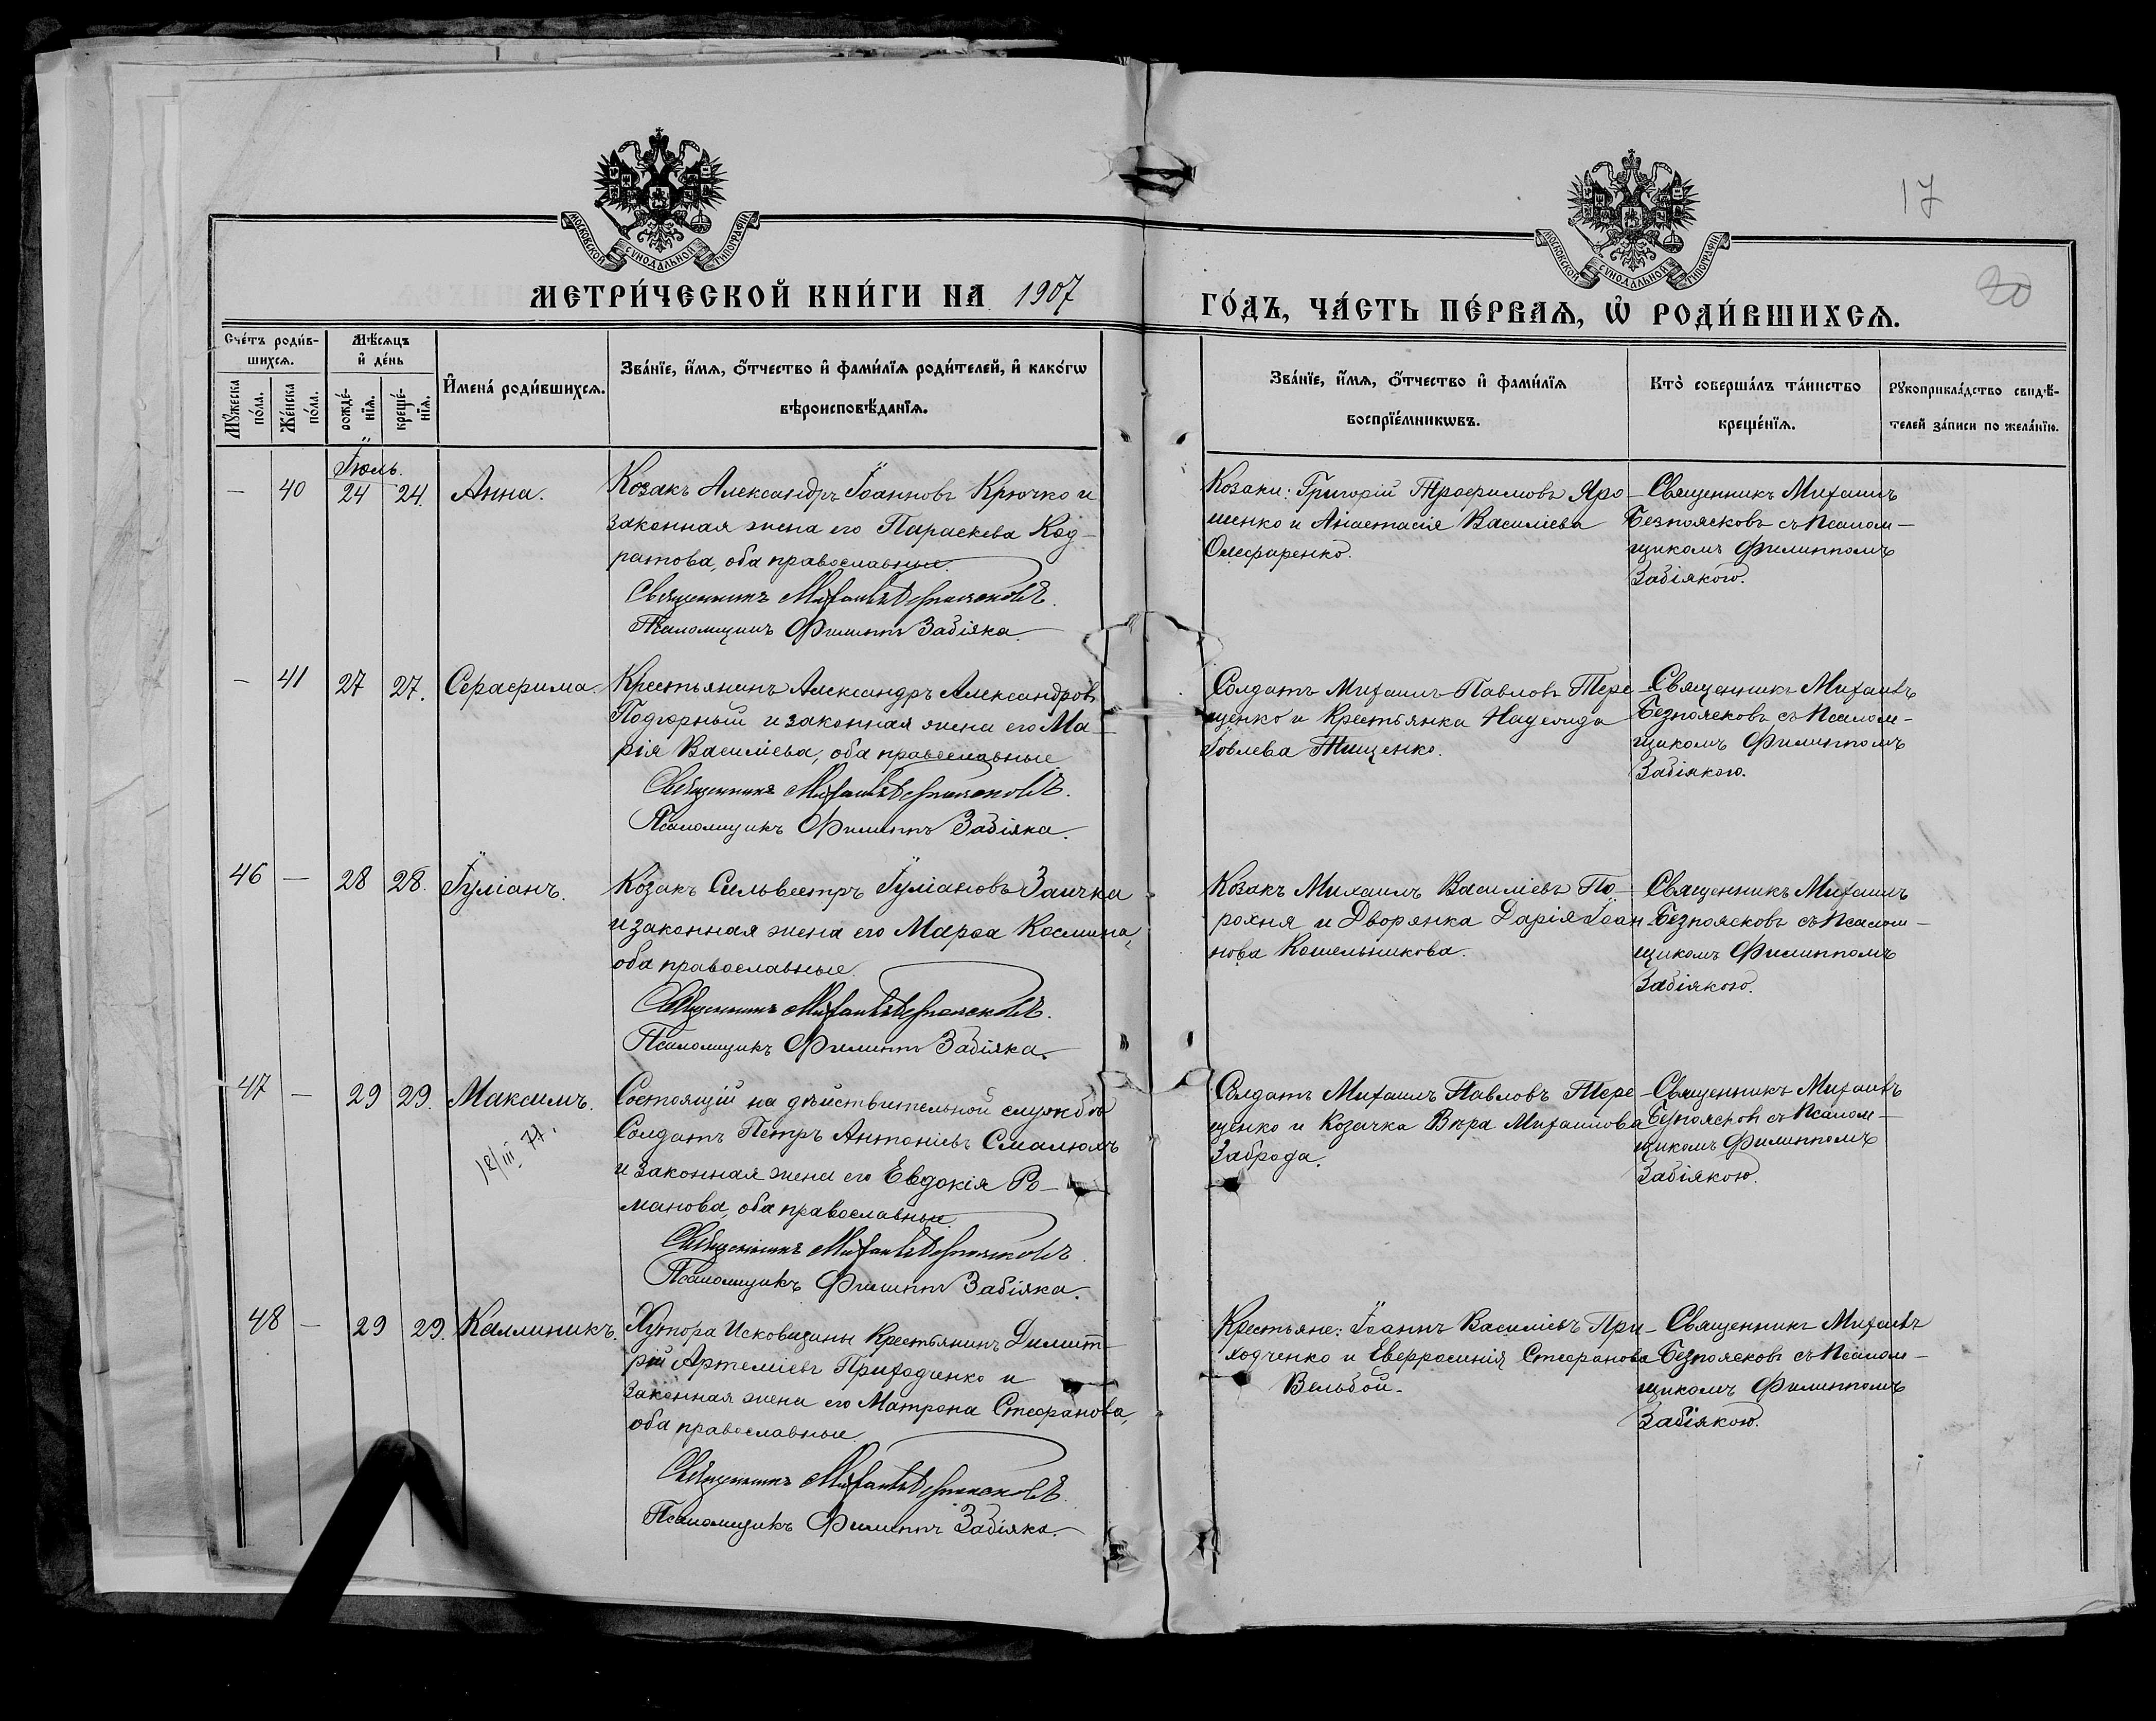 17
20
МОСКОВСКОЙ СѴНОДАЛЬНОЙ ТИПОГРАФІИ
МОСКОВСКОЙ СѴНОДАЛЬНОЙ ТИПОГРАФІИ
МЕТРИ́ЧЕСКОЙ КНИ́ГИ НА 1907
ГО́ДЪ, ЧА́СТЬ ПЕ́РВАѦ, Ѡ҆ РОДИ́ВШИХСѦ.
Сче́тъ роди́в-
шихсѧ.
Мѣ́сѧцъ
и҆ де́нь
Мꙋ́жеска
по́ла.
Же́нска
по́ла.
рожде́-
нїѧ.
креще́-
нїѧ.
И҆мена̀ роди́вшихсѧ.
Зва́нїе, и҆́мѧ, ѻ҆́тчество и҆ фами́лїѧ роди́телей, и҆ како́гѡ
вѣроисповѣ́данїѧ.
Зва́нїе, и҆́мѧ, ѻ҆́тчество и҆ фами́лїѧ
воспрїе́мникѡвъ.
Кто̀ соверша́лъ та́инство
креще́нїѧ.
Рꙋкоприкла́дство свидѣ́-
телей за́писи по жела́нїю.
Іюль.
— 40 24 24. Анна.
Козакъ Александръ Іоанновъ Крючко и
законная жена его Параскева Код-
ратова, оба православные.
Священникъ Михаилъ Безпоясковъ.
Псаломщикъ Филиппъ Забіяка.
Козаки: Григорій Трофимовъ Яро-
шенко и Анастасія Василіева
Олефаренко.
Священникъ Михаилъ
Безпоясковъ съ Псалом-
щикомъ Филиппомъ
Забіякою.
— 41 27 27. Серафима.
Крестьянинъ Александръ Александровъ
Подгорный и законная жена его Ма-
рія Василіева, оба православные
Священникъ Михаилъ Безпоясковъ.
Псаломщикъ Филиппъ Забіяка.
Солдатъ Михаилъ Павловъ Тере-
щенко и Крестьянка Надежда
Іовлева Тищенко.
Священникъ Михаилъ
Безпоясковъ съ Псалом-
щикомъ Филиппомъ
Забіякою.
46 — 28 28. Іуліанъ.
Козакъ Сильвестръ Іуліановъ Заичка
и законная жена его Марѳа Космина,
оба православные.
Священникъ Михаилъ Безпоясковъ.
Псаломщикъ Филиппъ Забіяка.
Козакъ Михаилъ Василіевъ По-
рохня и Дворянка Дарія Іоан-
нова Кошельникова.
Священникъ Михаилъ
Безпоясковъ съ Псалом-
щикомъ Филиппомъ
Забіякою.
47 — 29 29. Максимъ.
18/III 71.
Состоящій на дѣйствительной службѣ
Солдатъ Петръ Антоніевъ Смалюхъ
и законная жена его Евдокія Ро-
манова, оба православные.
Священникъ Михаилъ Безпоясковъ
Псаломщикъ Филиппъ Забіяка.
Солдатъ Михаилъ Павловъ Тере-
щенко и Козачка Вѣра Михаилова
Заброда.
Священникъ Михаилъ
Безпоясковъ съ Псалом-
щикомъ Филиппомъ
Забіякою.
48 — 29 29. Каллиникъ.
Хутора Исковщины Крестьянинъ Димит-
рій Артеміевъ Приходченко и
законная жена его Матрона Стефанова,
оба православные.
Священникъ Михаилъ Безпоясковъ.
Псаломщикъ Филиппъ Забіяка.
Крестьяне: Іоаннъ Василіевъ При-
ходченко и Евфросинія Стефанова
Вельбой.
Священникъ Михаилъ
Безпоясковъ съ Псалом-
щикомъ Филиппомъ
Забіякою.